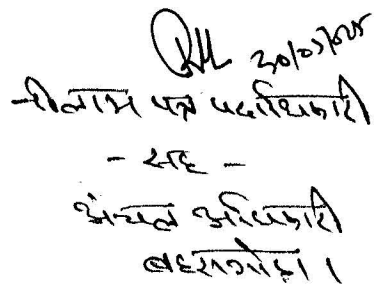 30/07/025
नीलाम पत्र पदाधिकारी
- सह -
अंचल अधिकारी
बहरागोड़ा।